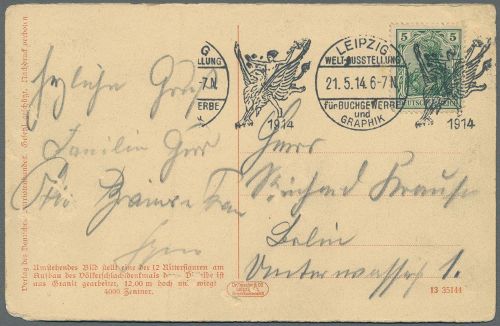 LEIPZIG
WELT-AUSSTELLUNG
21.5.14.6-7N.
für BUCHGEWERBE
und
GRAPHIK
1914
G
LLUNG
-7N.
ERBE
K
1914
5 5
Herzliche Gruß
Familie
Herrn
Richard Krause
Berlin
Unterwasserstr. 1.
Umstehendes Bild stellt eine der 12 Ritterfiguren am
Aufbau des Völkerschlachtdenkmals dar. Dieselbe ist
aus Granit gearbeitet, 12,00 m hoch und wiegt
4000 Zentner.
Verlag des Deutschen Patriotenbundes. Gesetzl. geschützt. Nachdruck verboten
13 35144